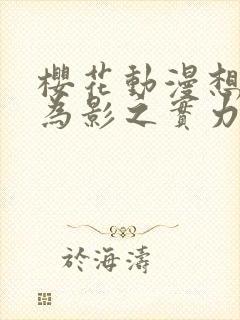 櫻花動漫想
為影之實力
於海濤